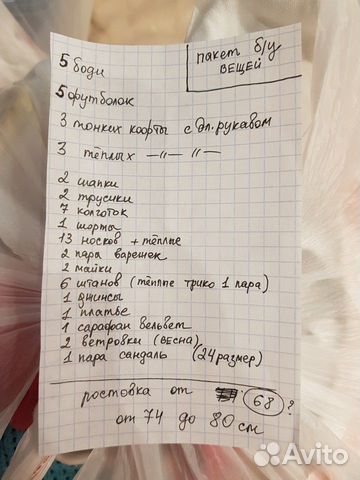 пакет б/у
ВЕЩЕЙ
5 боди
5 футболок
3 тонких кофты с дл. рукавом
3 тёплых —〃— 〃—
2 шапки
2 трусики
7 колготок
1 шорты
13 носков + тёплые
2 пары варежек
2 майки
6 штанов (тёплые трико 1 пара)
1 джинсы
1 платье
1 сарафан вельвет
2 ветровки (весна)
1 пара сандаль (24 размер)
ростовка от 68?
от 74 до 80 см
Avito